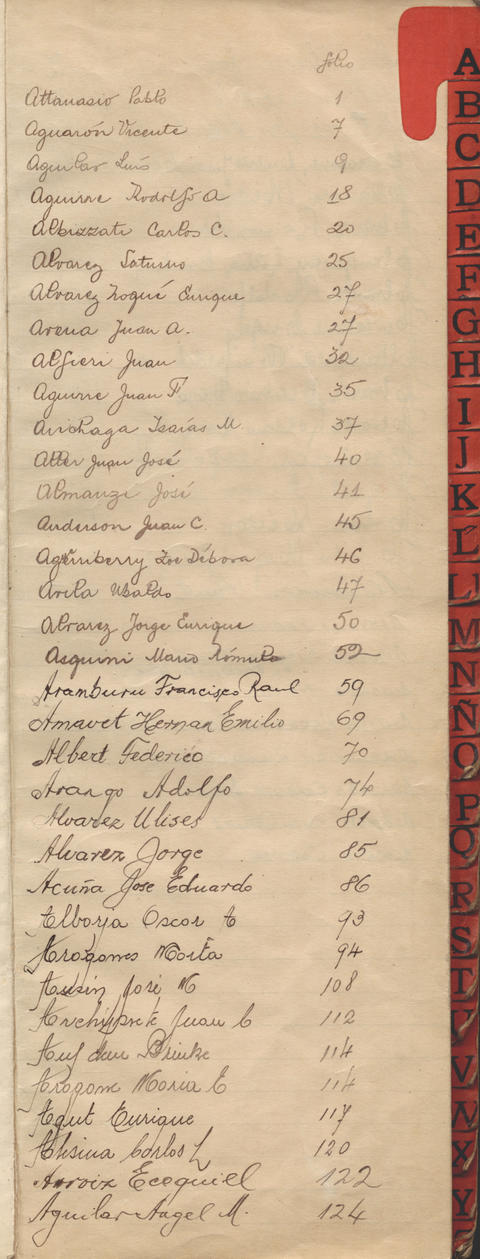 folio
Attanasio Pablo 1
Aguarón Vicente 7
Aguilar Luis 9
Aguirre Rodolfo A 18
Albizzati Carlos C. 20
Alvarez Saturno 25
Alvarez Roqué Enrique 27
Arena Juan A. 27
Alfieri Juan 32
Aguirre Juan F 35
Arichaga Isaías M. 37
Atter Juan José 40
Almanzi José 41
Anderson Juan C. 45
Agerriberry Zoe Débora 46
Avila Ubaldo 47
Alvarez Jorge Enrique 50
Asquini Mario Rómulo 52
Aramburu Francisco Raul 59
Amavet Hernan Emilio 69
Albert Federico 70
Arango Adolfo 74
Alvarez Ulises 81
Alvarez Jorge 85
Acuña Jose Eduardo 86
Alborja Oscar A 93
Aragones María 94
José M 108
Juan C 112
Auf dem Brinke 114
Aragone Maria E 114
Agut Enrique 117
Alsina Carlos L 120
Ecequiel 122
Aguilar Angel M. 124
A
B
C
D
E
F
G
H
I
J
K
L
LL
M
N
Ñ
O
P
Q
R
S
T
U
V
W
X
Y